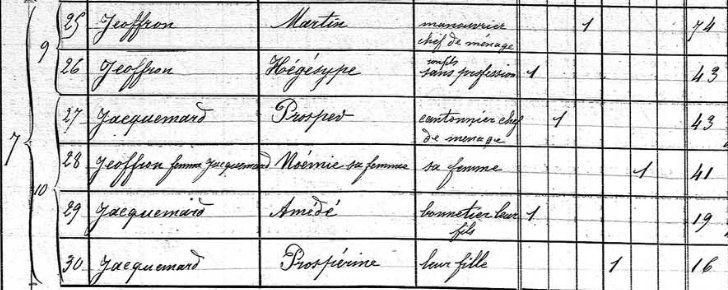 7
9
25 Jeoffron Martin manouvrier 1 74
chef de ménage
26 Jeoffron Hégésype son fils 1 43
sans profession
10
27 Jacquemard Prosper cantonnier chef 1 43
de ménage
28 Jeoffron femme Jacquemard Noémie sa femme sa femme 1 41
29 Jacquemard Amédé bonnetier leur 1 19
fils
30 Jacquemard Prospérine leur fille 1 16